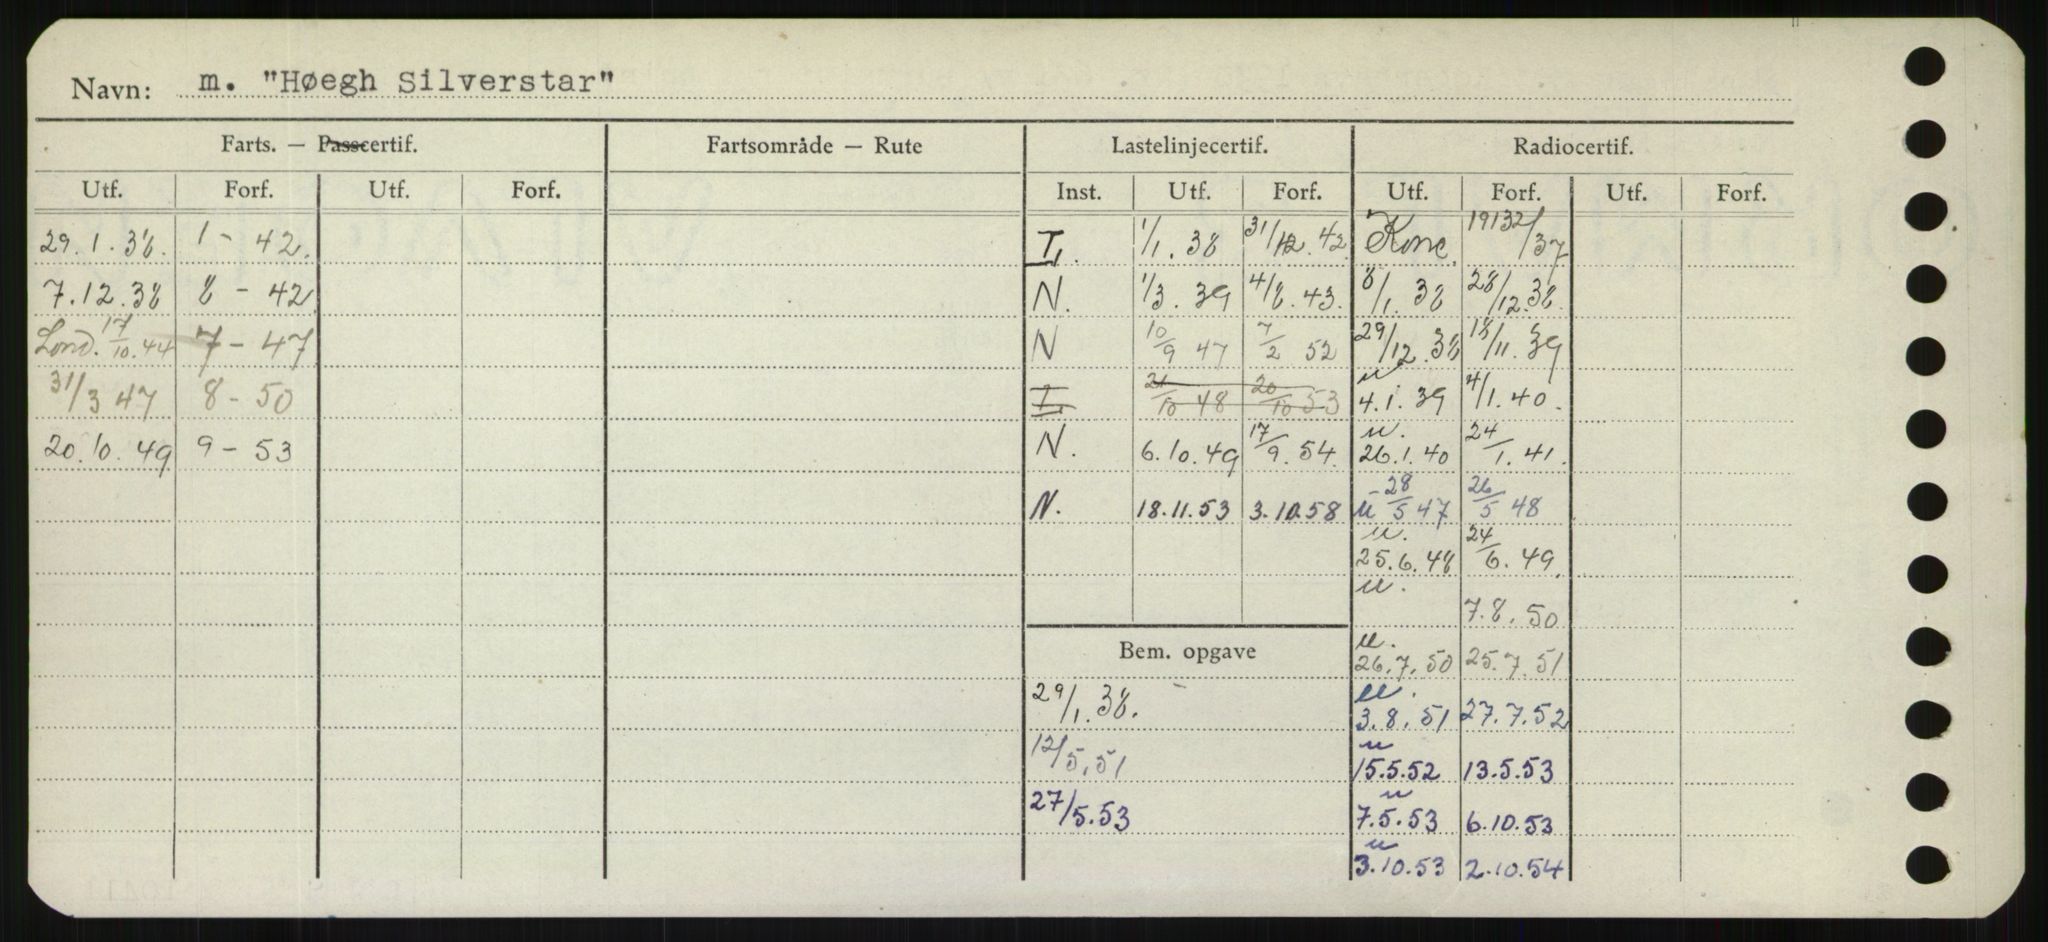 Navn: m. "Høegh Silverstar"
Farts. — Passcertif. Fartsområde — Rute Lastelinjecertif. Radiocertif.
Utf. Forf. Utf. Forf. Inst. Utf. Forf. Utf. Forf. Utf. Forf.
29.1.38. 1 - 42. I. 1/1.38 31/12.42 Konc. 19132/37
7.12.38 8 - 42 N. 1/3.39 4/8.43. 8/1.38 28/12.38.
Lond. 17/10.44 7 - 47 N 10/9 47 7/2 52 29/12.38 18/11.39
31/3 47 8 - 50 I. 21/10 48 20/10 53 u 4.1.39 4/1.40.
20.10.49 9 - 53 N. 6.10.49 17/9.54. u. 26.1.40 24/1.41.
N. 18.11.53 3.10.58 u 28/5 47 26/5 48
u. 25.6.48 24/6.49.
u. 7.8.50
Bem. opgave u. 26.7.50 25.7.51
29/1.38. u. 3.8.51 27.7.52
12/5.51 u 15.5.52 13.5.53
27/5.53 u 7.5.53 6.10.53
u 3.10.53 2.10.54